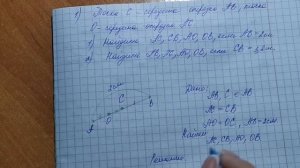 1) Точка C - середина отрезка AB, точка
O - середина отрезка AC
1) Найдите AC, CB, AO, OB, если AB = 2см
2) Найдите AB, AC, AO, OB, если CB = 3,2м
2см
C
B
O
A
Дано:
AB, C ∈ AB
AC = CB
AO = OC, AB = 2см
Найти:
AC, CB, AO, OB.
Решение